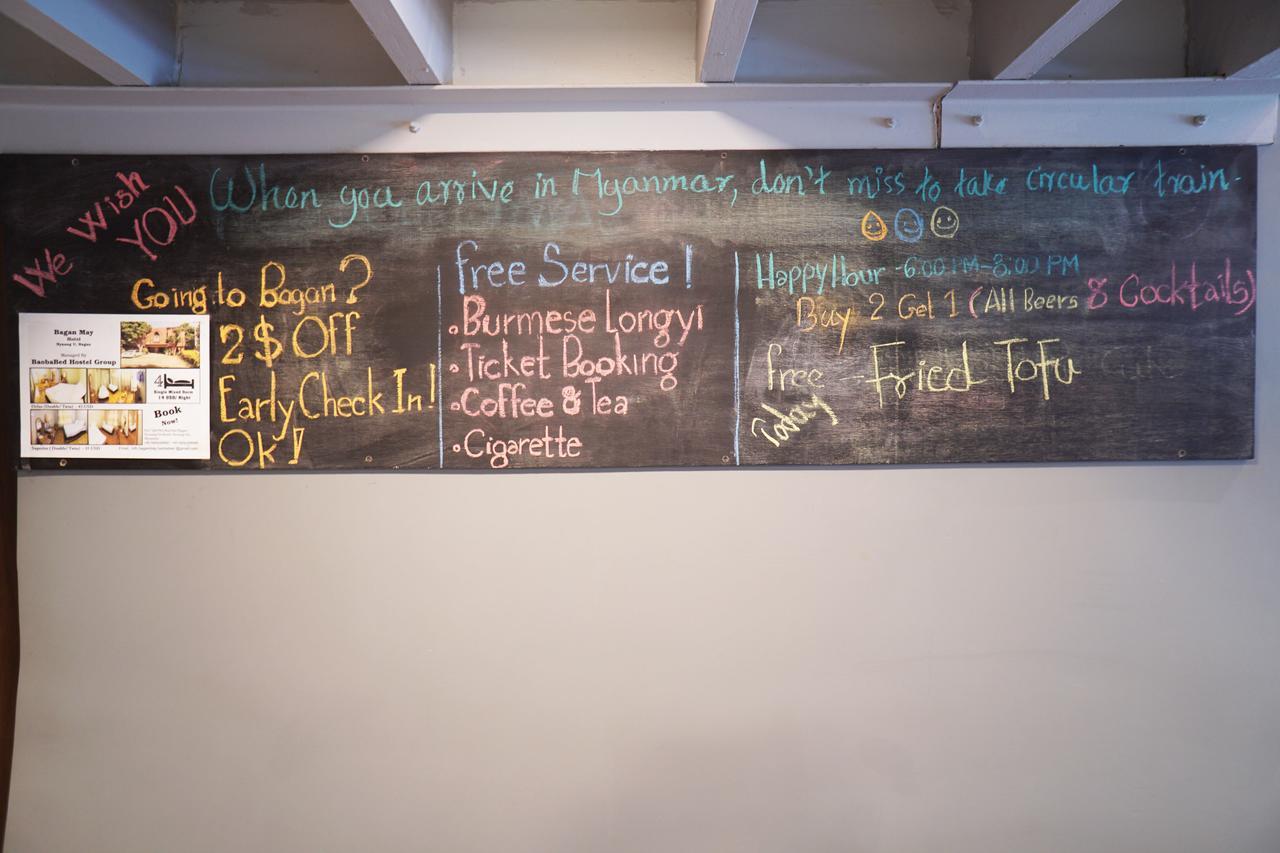 We Wish
YOU
When you arrive in Myanmar, don't miss to take circular train.
Going to Bagan?
2$ Off
Early Check In!
Ok!
Bagan May
Hotel
Nyaung U, Bagan
Managed By
BaobaBed Hostel Group
4
Single Mixed Dorm
14 USD/ Night
Book
Now!
free Service!
Burmese Longyi
Ticket Booking
Coffee & Tea
Cigarette
Happy Hour - 6:00 PM-8:00 PM
Buy 2 Get 1 (All Beers & Cocktails)
free Fried Tofu
Today